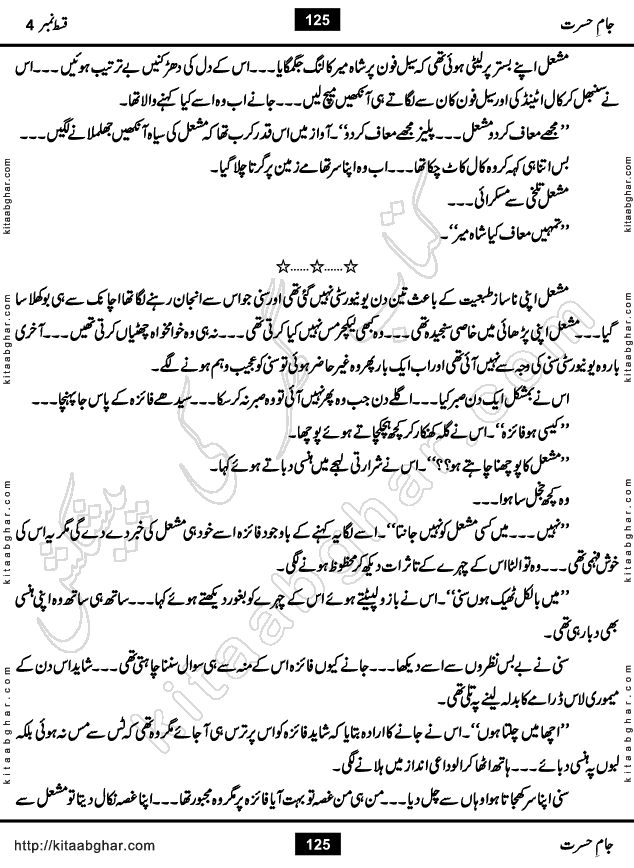 جامِ حسرت 125 قسط نمبر 4
مشعل اپنے بستر پر لیٹی ہوئی تھی کہ سیل فون پر شاہ میر کالنگ جگمگایا۔۔۔اس کے دل کی دھڑکنیں بے ترتیب ہوئیں ۔۔۔اس
نے سنبھل کر کال اٹینڈ کی اور سیل فون کان سے لگاتے ہی آنکھیں میچ لیں۔۔۔جانے اب وہ اسے کیا کہنے والا تھا۔
’’مجھے معاف کردو مشعل۔۔۔پلیز مجھے معاف کردو‘‘۔آواز میں اس قدر کرب تھا کہ مشعل کی سیاہ آنکھیں جھلملانے لگیں۔۔۔
بس اتنا ہی کہہ کر وہ کال کاٹ چکا تھا۔۔۔اب وہ اپنا سر تھامے زمین پر گرتا چلا گیا۔
مشعل تلخی سے مسکرائی۔۔۔
’’تمہیں معاف کیا شاہ میر‘‘۔
☆......☆......☆
مشعل اپنی ناساز طبعیت کے باعث تین دن یونیورسٹی نہیں گئی تھی اور سنی جو اس سے انجان رہنے لگا تھا اچانک سے ہی بوکھلا سا
گیا۔۔۔مشعل اپنی پڑھائی میں خاصی سنجیدہ تھی۔۔۔وہ کبھی لیکچر مس نہیں کیا کرتی تھی۔۔۔نہ ہی وہ خوامخواہ چھٹیاں کرتی تھیں۔۔۔آخری
بار وہ یونیورسٹی سنی کی وجہ سے نہیں آئی تھی اور اب ایک بار پھر وہ غیر حاضر ہوئی تو سنی کو عجیب وہم ہونے لگے۔
اس نے بمشکل ایک دن صبر کیا۔۔۔اگلے دن جب وہ پھر نہیں آئی تو وہ صبر نہ کرسکا۔۔۔سیدھے فائزہ کے پاس جا پہنچا۔۔۔
’’کیسی ہو فائزہ‘‘۔اس نے گلہ کھنکار کر کچھ ہچکچاتے ہوئے پوچھا۔
’’مشعل کا پوچھنا چاہتے ہو؟؟‘‘۔اس نے شرارتی لہجے میں ہنسی دباتے ہوئے کہا۔
وہ کچھ خجل سا ہوا۔۔۔
’’نہیں۔۔۔میں کسی مشعل کو نہیں جانتا‘‘۔اسے لگا یہ کہنے کے باوجود فائزہ اسے خود ہی مشعل کی خبر دے دے گی مگر یہ اس کی
خوش فہمی تھی۔۔۔وہ تو الٹا اس کے چہرے کے تاثرات دیکھ کر محظوظ ہونے لگی۔
’’میں بالکل ٹھیک ہوں سنی‘‘۔اس نے بازو لپیٹتے ہوئے اس کے چہرے کو بغور دیکھتے ہوئے کہا۔۔۔ساتھ ہی ساتھ وہ اپنی ہنسی
بھی دبا رہی تھی۔
سنی نے بے بس نظروں سے اسے دیکھا۔۔۔جانے کیوں فائزہ اس کے منہ سے ہی سوال سننا چاہتی تھی۔۔۔شاید اس دن کے
میموری لاس ڈرامے کا بدلہ لینے پہ تلی تھی۔
’’اچھا میں چلتا ہوں‘‘۔اس نے جانے کا ارادہ بتایا کہ شاید فائزہ کو اس پر ترس ہی آجائے مگر وہ تھی کہ ٹس سے مس نہ ہوئی بلکہ
لبوں پہ ہنسی دبائے۔۔۔ہاتھ اٹھا کر الوداعی انداز میں ہلانے لگی۔
سنی اپنا سر کھجاتا ہوا وہاں سے چل دیا۔۔۔من ہی من غصہ تو بہت آیا فائزہ پر مگر وہ مجبور تھا۔۔۔اپنا غصہ نکال دیتا تو مشعل سے
kitaabghar.com
kitaabghar.com
kitaabghar.com
kitaabghar.com
kitaabghar.com
kitaabghar.com
kitaabghar.com
kitaabghar.com
کتاب گھر کی پیشکش
kitaabghar.com
جامِ حسرت 125 http://kitaabghar.com